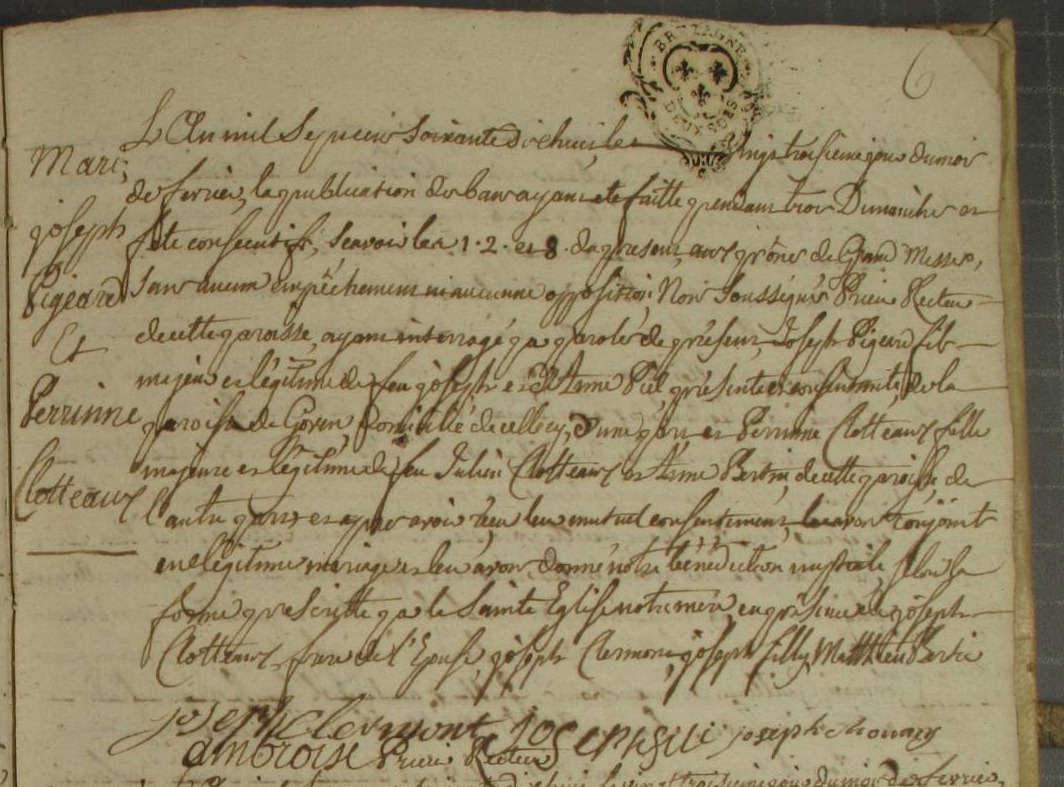 BRETAGNE
DEUX SOLS
6
Mari;
joseph
Pigeard
Et
Perrinne
Clotteaux
L'An mil Sept cent Soixante dixhuit, le vingt troisieme jour du mois
de fevrier, la publication des bans ayant ete faitte pendant trois Dimanches et
fete consecutifs, sçavoir les 1. 2. et 8. du present, aux prônes de Grand Messes,
Sans aucun empêchement ni aucunne opposition; Nous Soussigné Prieur Recteur
de cette paroisse, ayant interrogé par paroles de présent, Joseph Pigeard fils
majeur et légitime de feu joseph et d'Anne Piel présente et consentante, de la
paroisse de Goven, Domicilié de celle cy, d'une part et Perrinne Clotteaux fille
majeure et légitime de feu Julien Clotteaux et d'Anne Bertin, de cette paroisse, de
l'autre part, et apres avoir reçu leur mutuel consentement, les avons conjoint
en légitime mariage et leur avons donné notre bénédiction nuptiale, selon la
forme prescritte par la Sainte Eglise notre mère, en présence de joseph
Clotteaux frere de l'Epouse, joseph Clermont, joseph filly, Matthieu Bertin
joseph clermont joseph fili joseph chouary
ambroise Prieur Recteur
vingt troisieme jour du mois de fevrier,